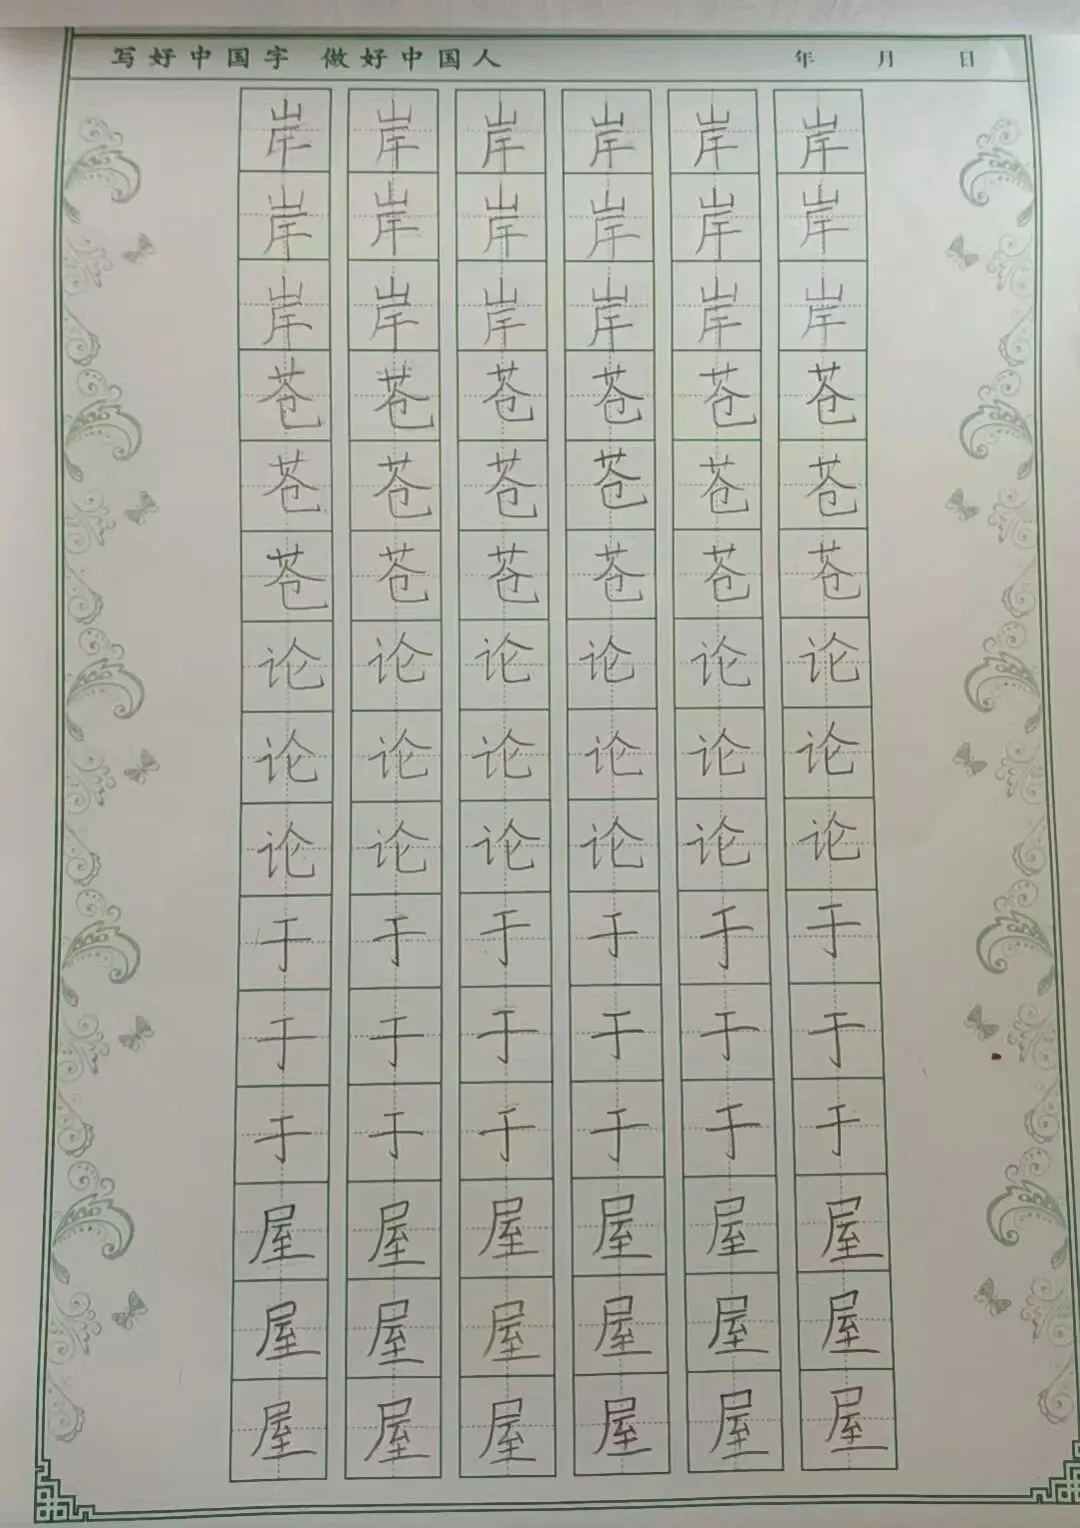 写好中国字 做好中国人 年 月 日
岸 岸 岸 岸 岸 岸
岸 岸 岸 岸 岸 岸
岸 岸 岸 岸 岸 岸
苍 苍 苍 苍 苍 苍
苍 苍 苍 苍 苍 苍
苍 苍 苍 苍 苍 苍
论 论 论 论 论 论
论 论 论 论 论 论
论 论 论 论 论 论
于 于 于 于 于 于
于 于 于 于 于 于
于 于 于 于 于 于
屋 屋 屋 屋 屋 屋
屋 屋 屋 屋 屋 屋
屋 屋 屋 屋 屋 屋